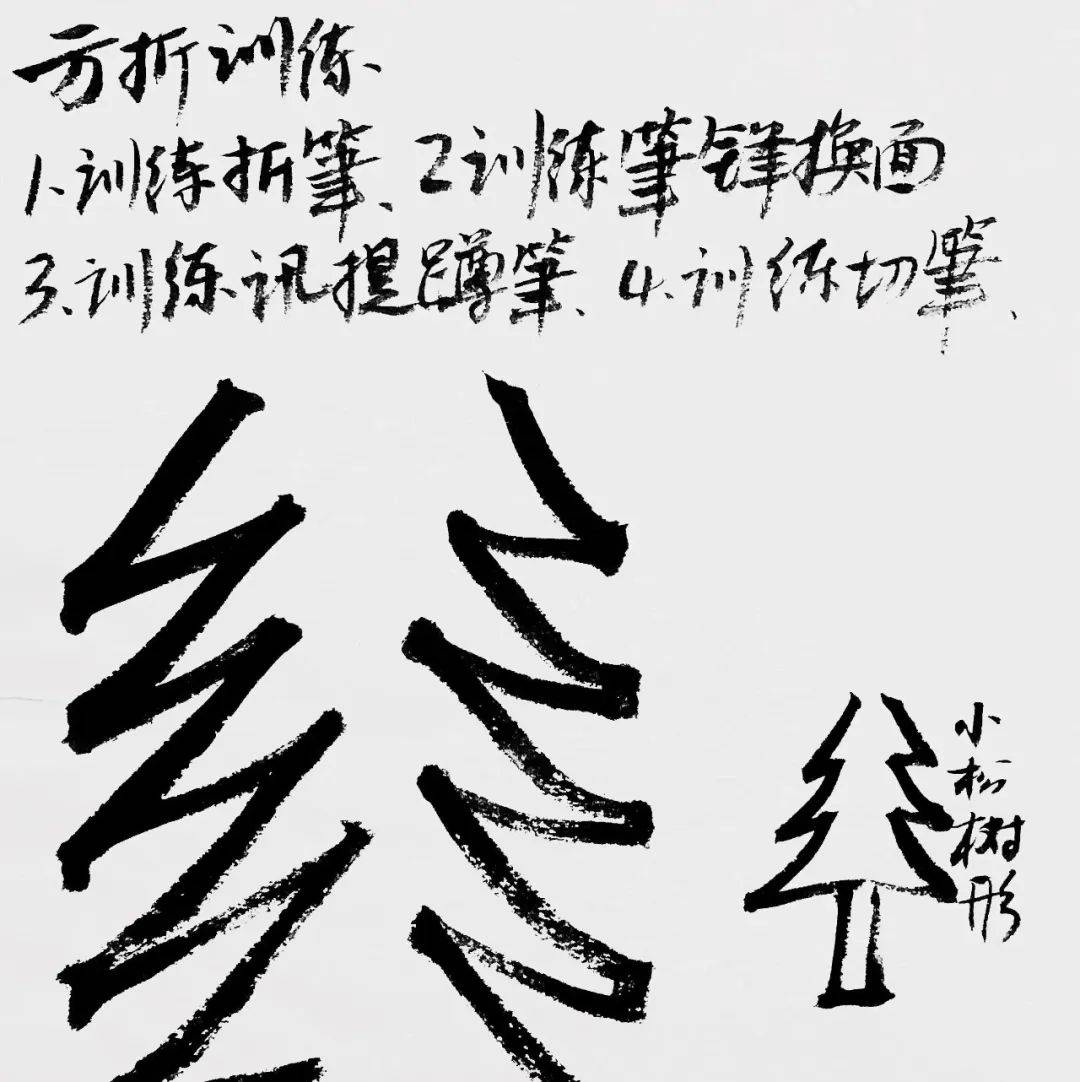 方折训练
1.训练折筆、2训练筆锋换面
3.训练讯提蹲筆、4.训练切筆、
小松树形